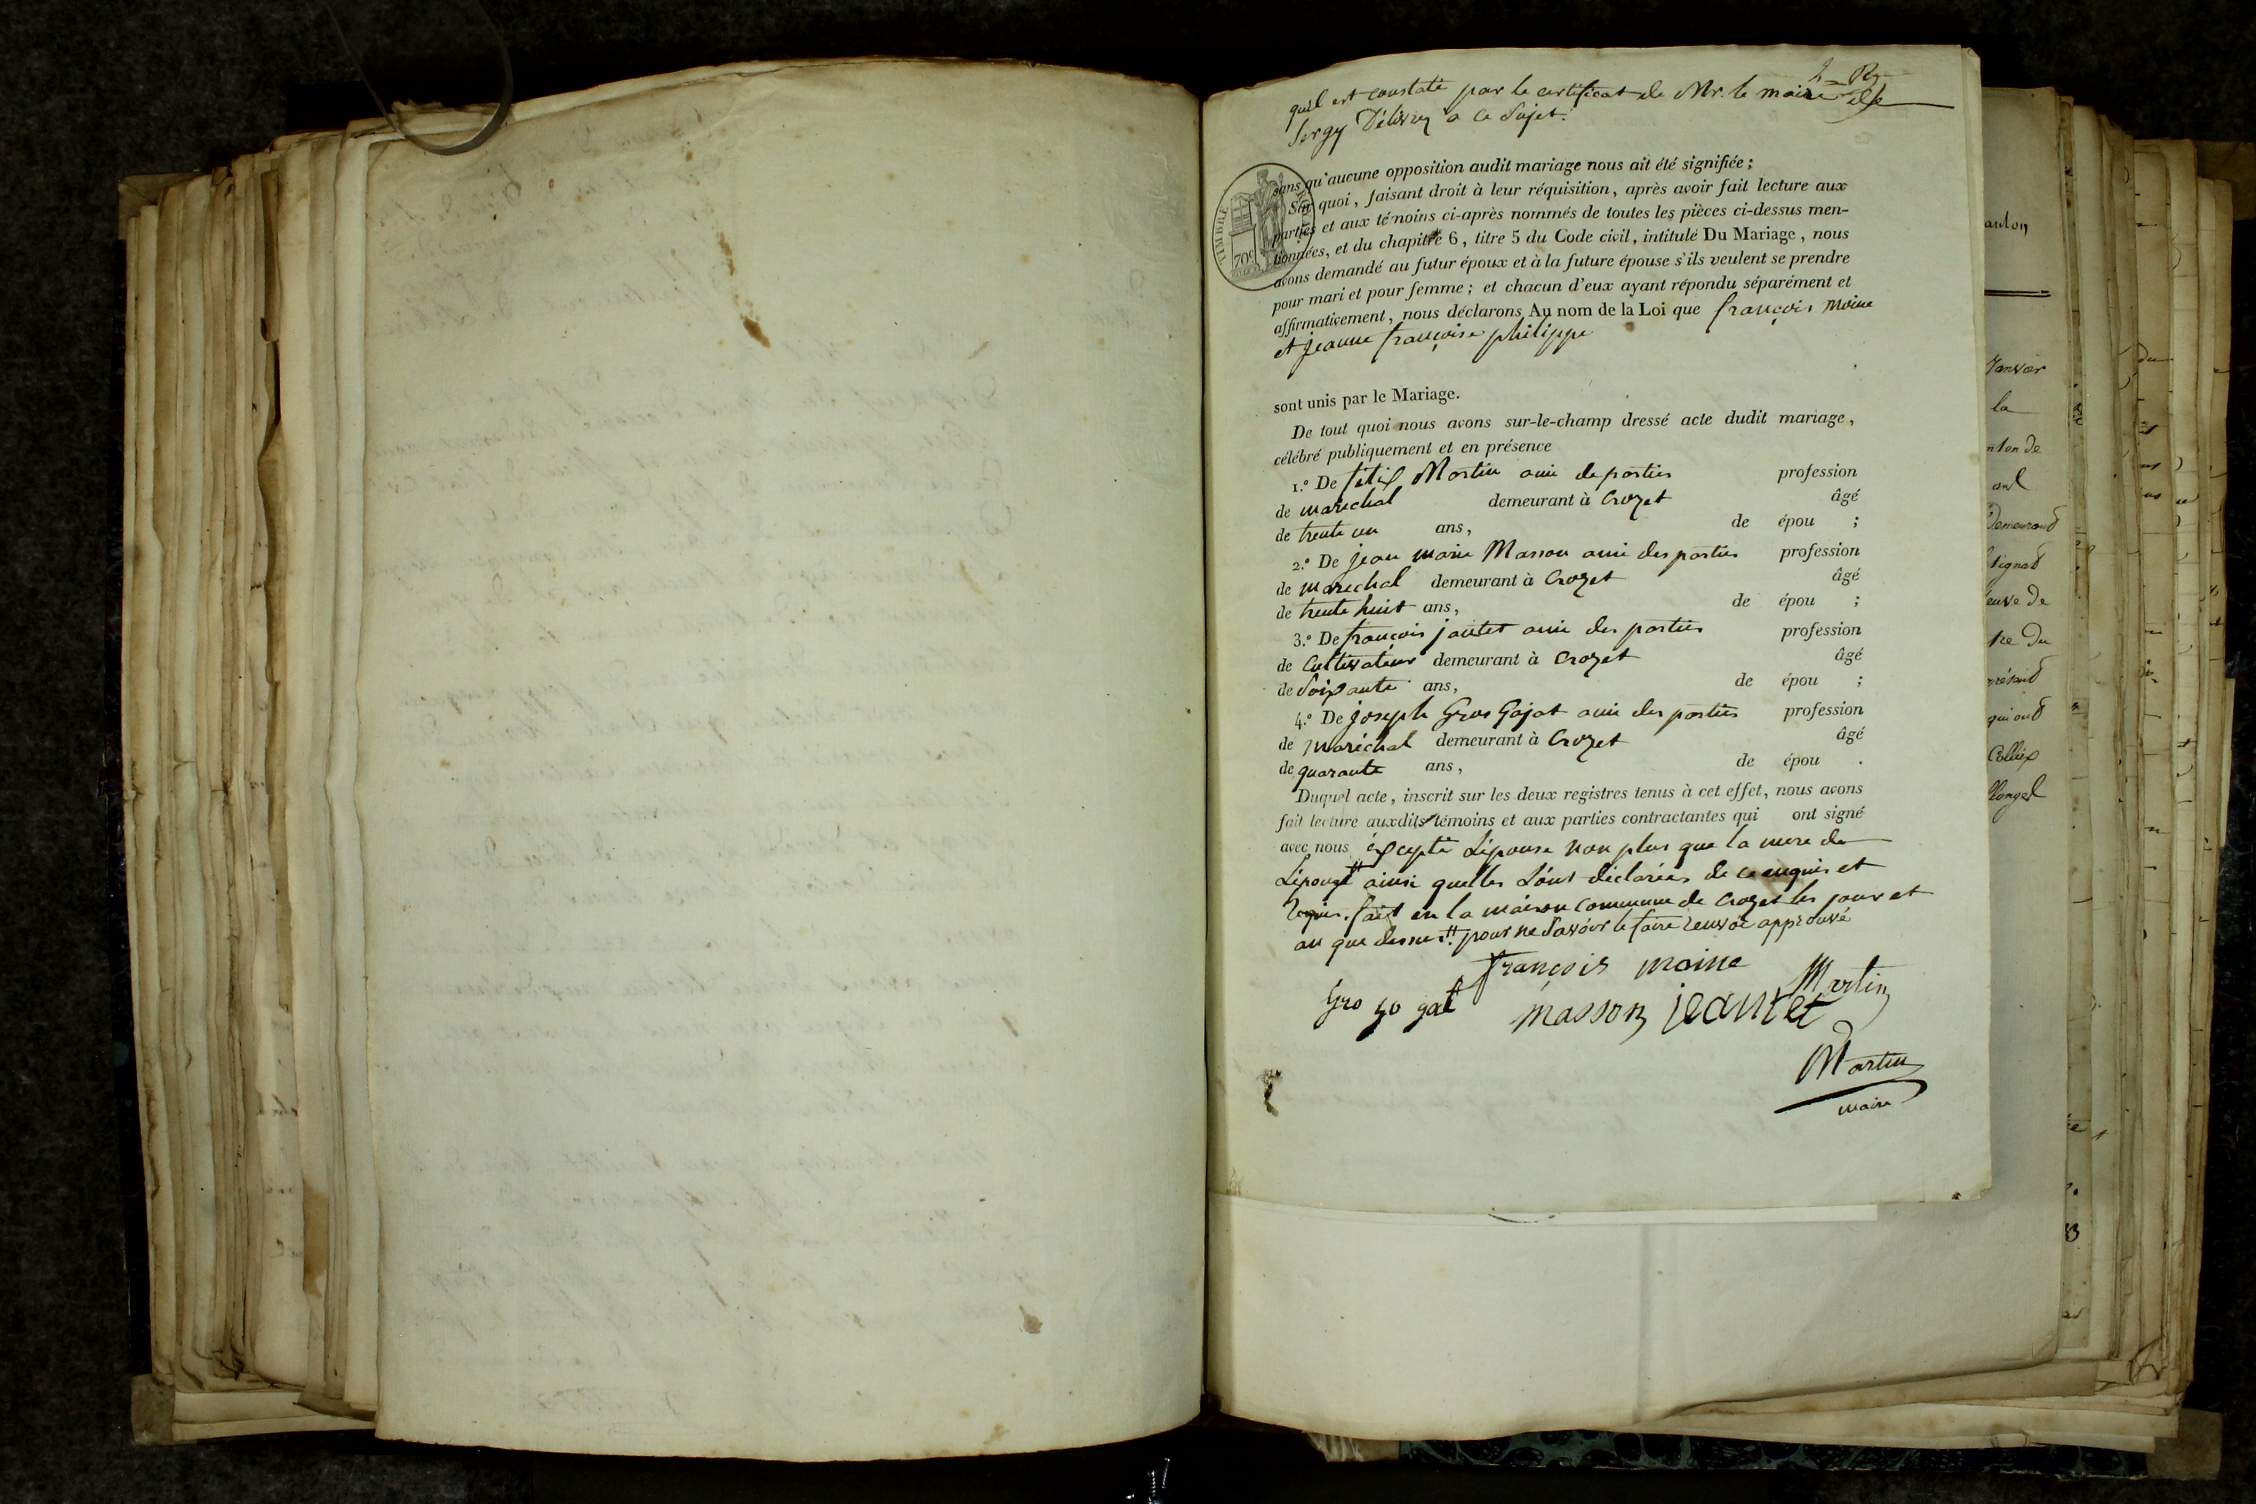 quil est constaté par le certificat de Mr. le maire de
Sergy Délivrez a ce Sujet.
TIMBRE ROYAL
70c
sans qu'aucune opposition audit mariage nous ait été signifiée ;
Sur quoi, faisant droit à leur réquisition, après avoir fait lecture aux
parties et aux témoins ci-après nommés de toutes les pièces ci-dessus men-
tionnées, et du chapitre 6, titre 5 du Code civil, intitulé Du Mariage, nous
avons demandé au futur époux et à la future épouse s'ils veulent se prendre
pour mari et pour femme ; et chacun d'eux ayant répondu séparément et
affirmativement, nous déclarons Au nom de la Loi que françois moine
et jeanne françoise philippe
sont unis par le Mariage.
De tout quoi nous avons sur-le-champ dressé acte dudit mariage,
célébré publiquement et en présence
1.º De félix Martin ami de parties profession
de maréchal demeurant à Crozet âgé
de trente un ans, de épou ;
2.º De jean marie Masson ami des parties profession
de marechal demeurant à Crozet âgé
de trente huit ans, de épou ;
3.º De françois jantet ami des parties profession
de Cultivateur demeurant à Crozet âgé
de Soixante ans, de épou ;
4.º De joseph Gros Gojat ami des parties profession
de maréchal demeurant à Crozet âgé
de quarante ans, de épou .
Duquel acte, inscrit sur les deux registres tenus à cet effet, nous avons
fait lecture auxdits témoins et aux parties contractantes qui ont signé
avec nous éxcepté Lépouse non plus que la mere de
Lépouse # ainsi quelles Sont déclarées de ce enquis et
Requis. fait en la maison commune de Crozet les jour et
an que dessus. # pour ne Savoir le faire renvoi approuvé
françois moine
Martin
Gro go gat masson jeantet
Martin
maire
anton
Janvier
la
nton de
Demeurand
signad
euve de
tre du